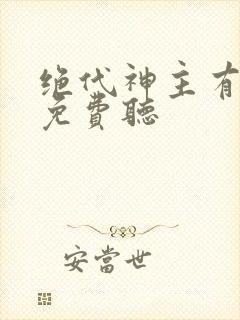 绝代神主有
免費聽
安當世